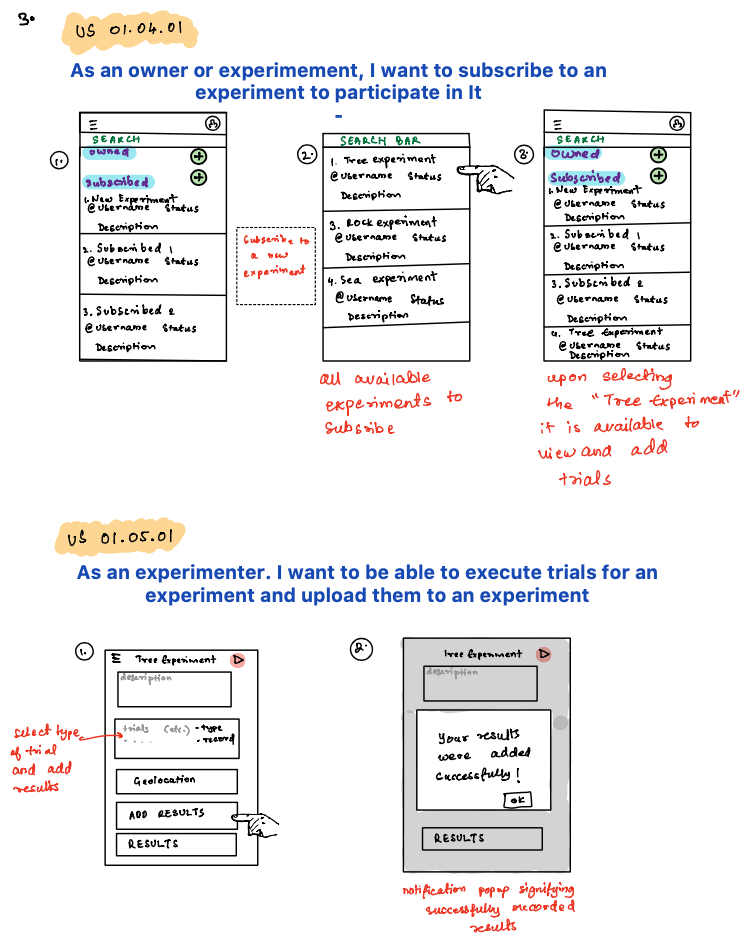 3.
US 01.04.01
As an owner or experimement, I want to subscribe to an
experiment to participate in It
-
1.
SEARCH
owned
+
Subscribed
+
1. New Experiment
@Username Status
Description
2. Subscribed 1
@Username Status
Description
3. Subscribed 2
@Username Status
Description
Subscribe to
a new
experiment
2.
SEARCH BAR
1. Tree experiment
@Username Status
Description
3. Rock experiment
@Username Status
Description
4. Sea experiment
@Username Status
Description
all available
experiments to
Subscribe
3.
SEARCH
owned
+
Subscribed
+
1. New Experiment
@Username Status
Description
2. Subscribed 1
@Username Status
Description
3. Subscribed 2
@Username Status
Description
4. Tree Experiment
@Username Status
Description
upon selecting
the "Tree Experiment"
it is available to
view and add
trials
US 01.05.01
As an experimenter. I want to be able to execute trials for an
experiment and upload them to an experiment
1.
Tree Experiment
description
trials (etc.) - type
- .... - record
Geolocation
ADD RESULTS
RESULTS
select type
of trial
and add
results
2.
Tree Experiment
description
Your results
were added
successfully!
OK
RESULTS
notification popup signifying
successfully recorded
results